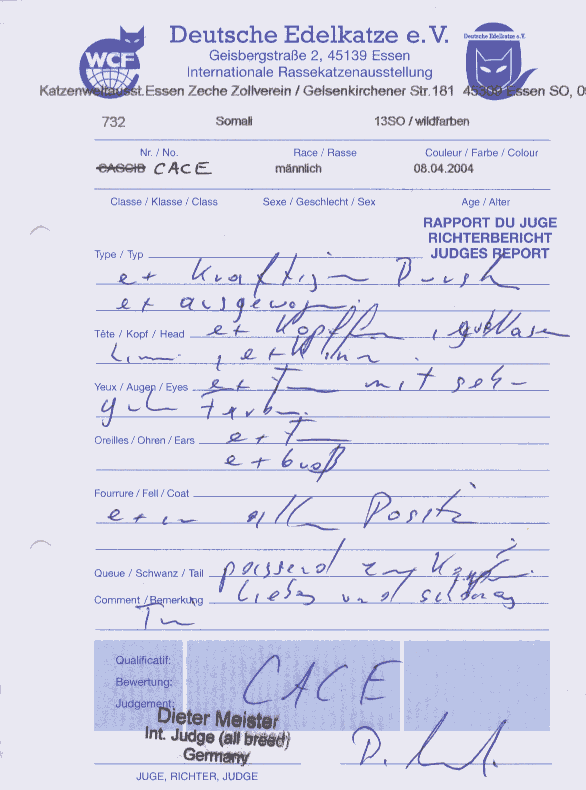 WCF
Deutsche Edelkatze e.V.
Deutsche Edelkatze e.V.
Geisbergstraße 2, 45139 Essen
Internationale Rassekatzenausstellung
Katzenweltausst.Essen Zeche Zollverein / Gelsenkirchener Str.181 45309 Essen SO, 0
732 Somali 13SO / wildfarben
Nr. / No. Race / Rasse Couleur / Farbe / Colour
CAGCIB CACE männlich 08.04.2004
Classe / Klasse / Class Sexe / Geschlecht / Sex Age / Alter
RAPPORT DU JUGE
RICHTERBERICHT
JUDGES REPORT
Type / Typ
ex
ex ausgewogen
Tête / Kopf / Head ex Kopfform
, ex Kinn
Yeux / Augen / Eyes ex mit sehr
gute Farbe
Oreilles / Ohren / Ears ex
ex
Fourrure / Fell / Coat
ex in all
Queue / Schwanz / Tail passend zum Körper
Comment / Bemerkung Liebes und
Tier
Qualificatif:
Bewertung: CACE
Judgement:
Dieter Meister
Int. Judge (all breed)
Germany
JUGE, RICHTER, JUDGE